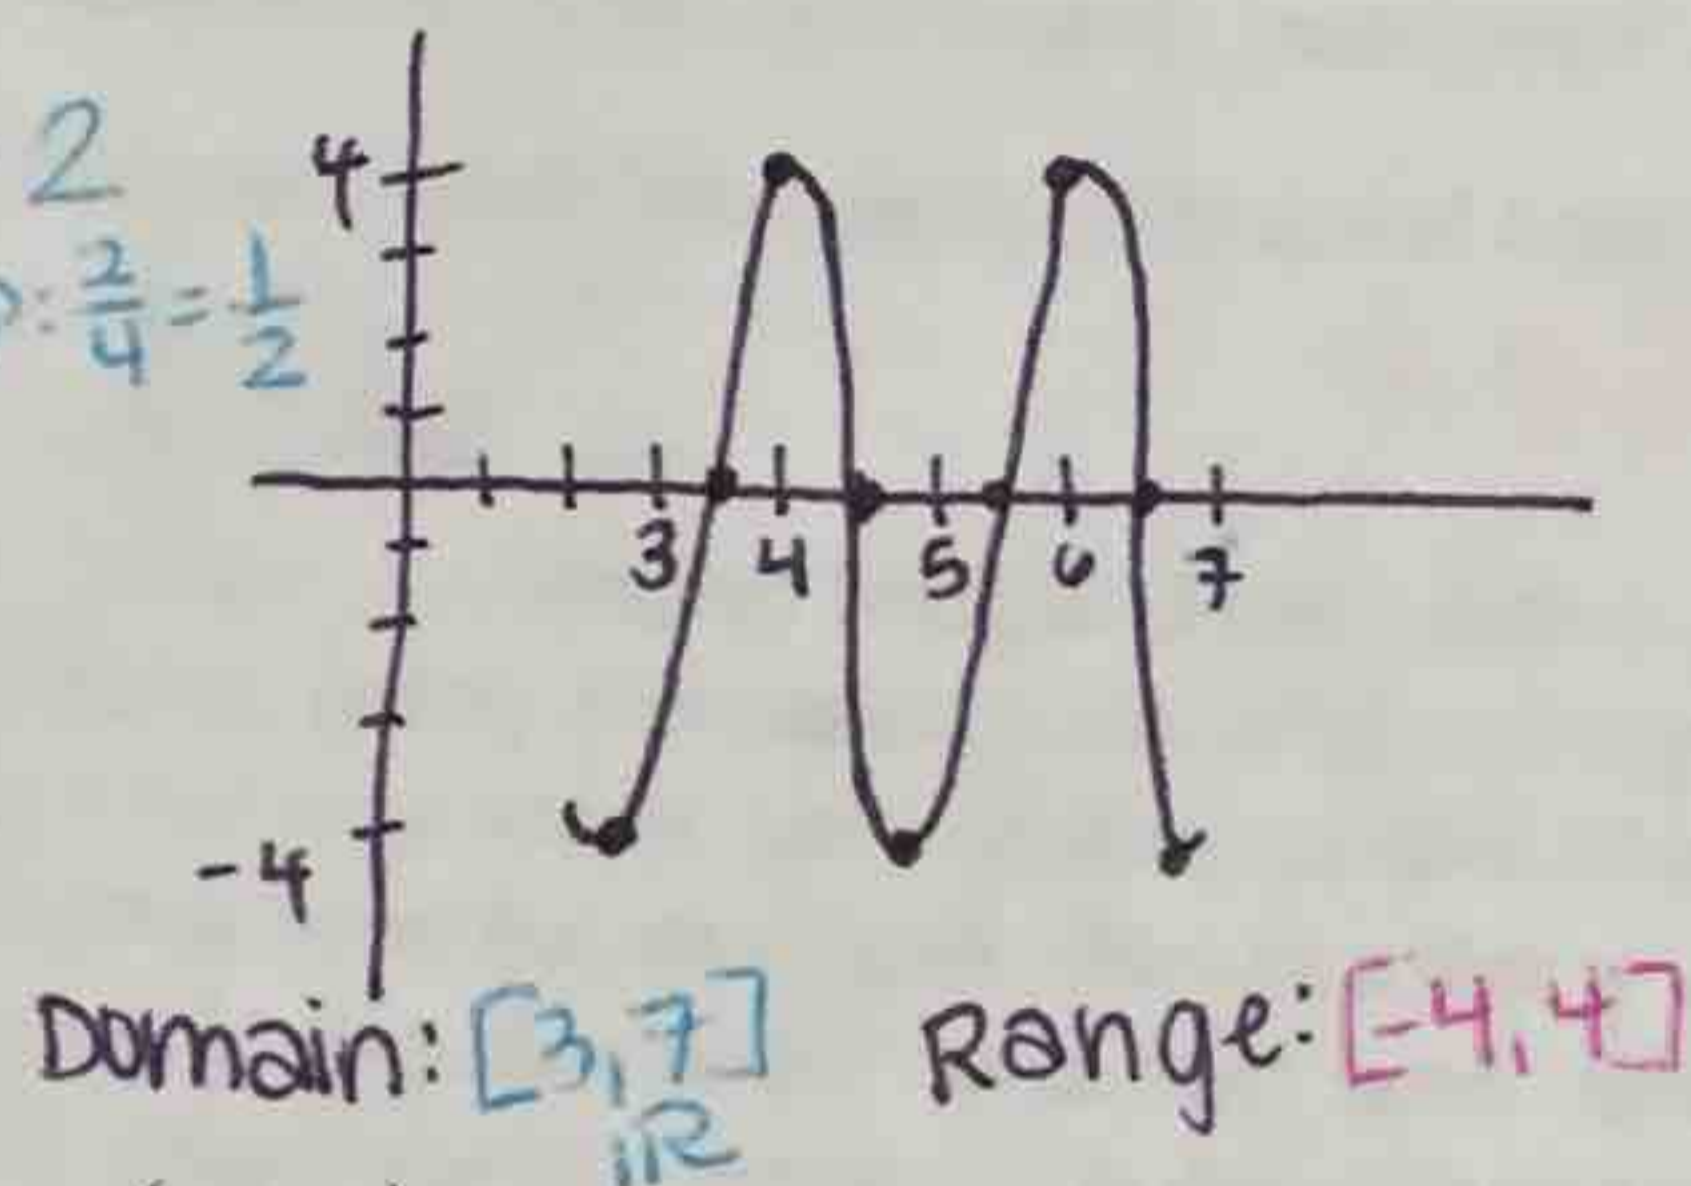 2
: 2/4 = 1/2
4
3 4 5 6 7
-4
Domain: [3,7]
Range: [-4,4]
ℝ